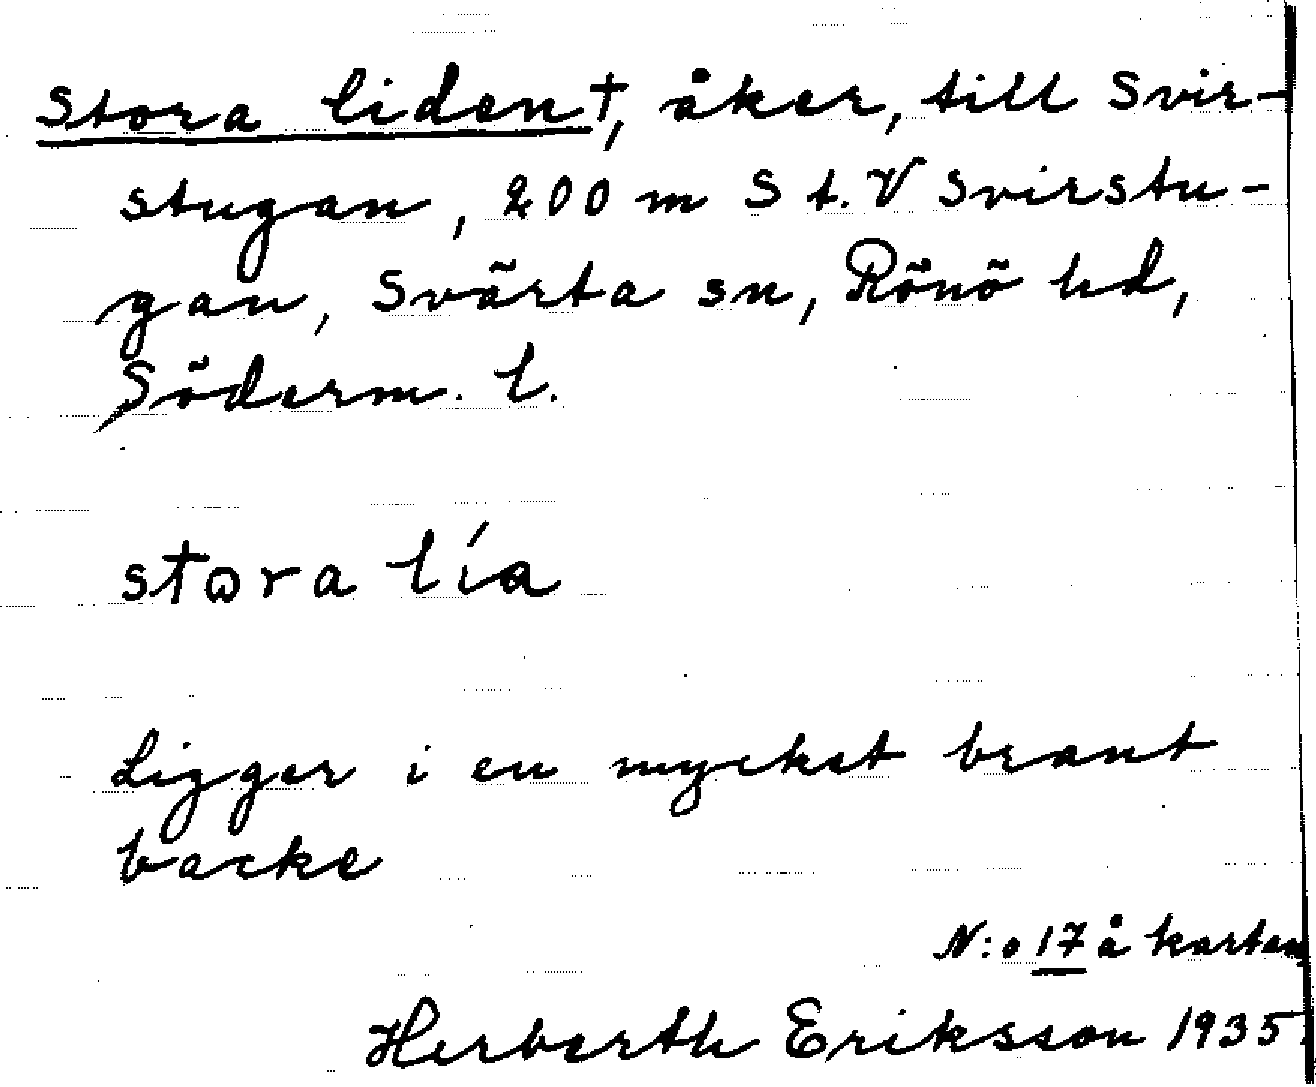 Stora liden†, åker, till Svir-
stugan, 200 m S t. V Svirstu-
gan, Svärta sn, Rönö hd,
Söderm. l.
stɷra lía
Ligger i en mycket brant
backe
N:o 17 å kartan
Herberth Eriksson 1935